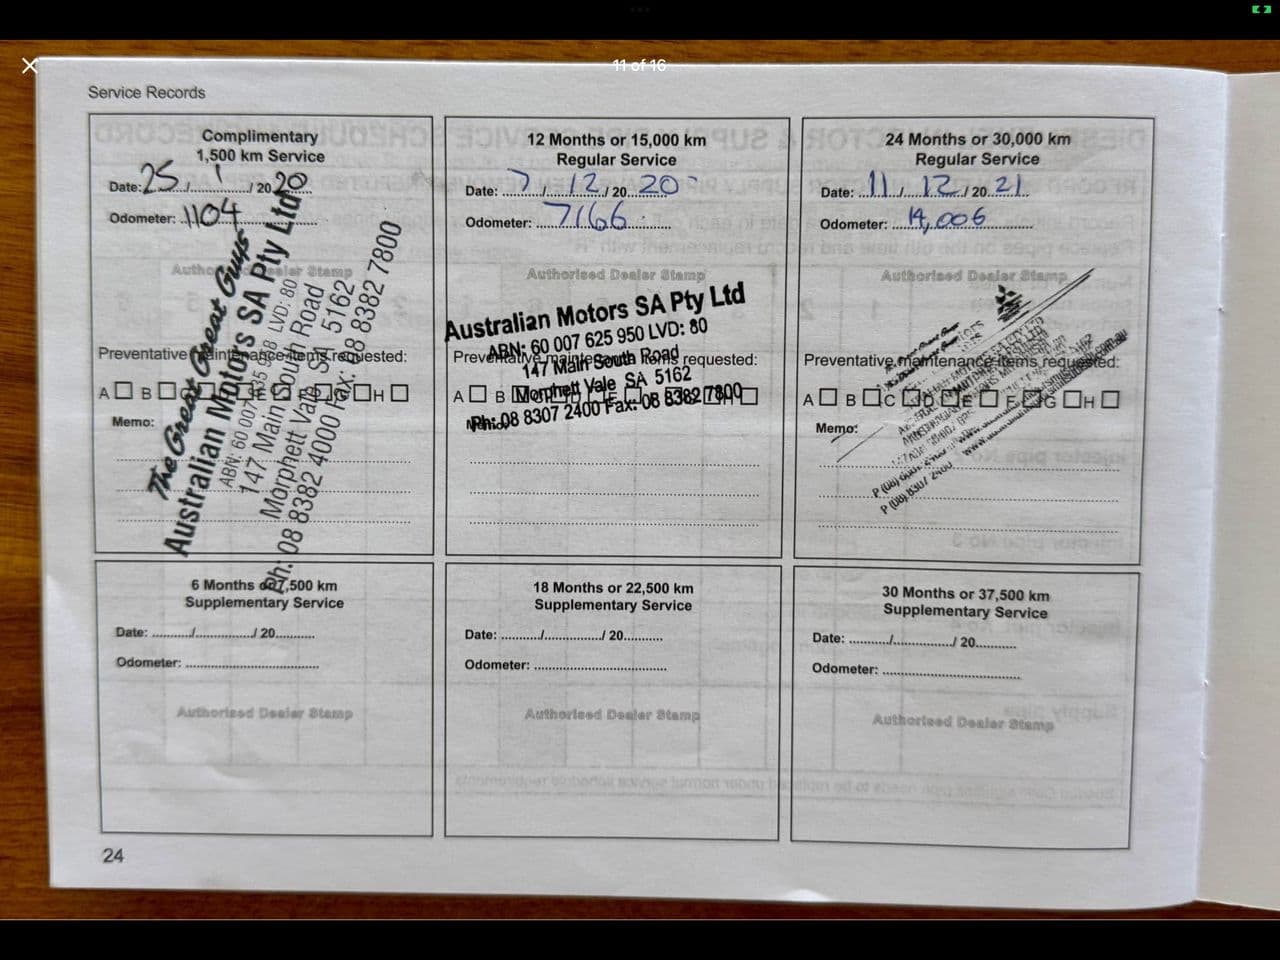 11 of 16
Service Records
Complimentary
1,500 km Service
Date: 25 / 1 / 20 20
Odometer: 1104
Authorised Dealer Stamp
The Great Great Guys
Australian Motors SA Pty Ltd
ABN: 60 007 625 LVD: 80
147 Main South Road
Morphett Vale SA 5162
Ph: 08 8382 4000 Fax: 08 8382 7800
Preventative maintenance items requested:
A B C D E F G H
Memo:
12 Months or 15,000 km
Regular Service
Date: 7 / 12 / 20 20
Odometer: 7166
Authorised Dealer Stamp
Australian Motors SA Pty Ltd
ABN: 60 007 625 950 LVD: 80
147 Main South Road
Morphett Vale SA 5162
Ph: 08 8307 2400 Fax: 08 8382 7800
Preventative maintenance items requested:
A B C D E F G H
Memo:
24 Months or 30,000 km
Regular Service
Date: 11 / 12 / 20 21
Odometer: 14,006
Authorised Dealer Stamp
Preventative maintenance items requested:
A B C D E F G H
Memo:
P (08) 8307 2400
6 Months or 7,500 km
Supplementary Service
Date: / / 20
Odometer:
Authorised Dealer Stamp
18 Months or 22,500 km
Supplementary Service
Date: / / 20
Odometer:
Authorised Dealer Stamp
30 Months or 37,500 km
Supplementary Service
Date: / / 20
Odometer:
Authorised Dealer Stamp
24